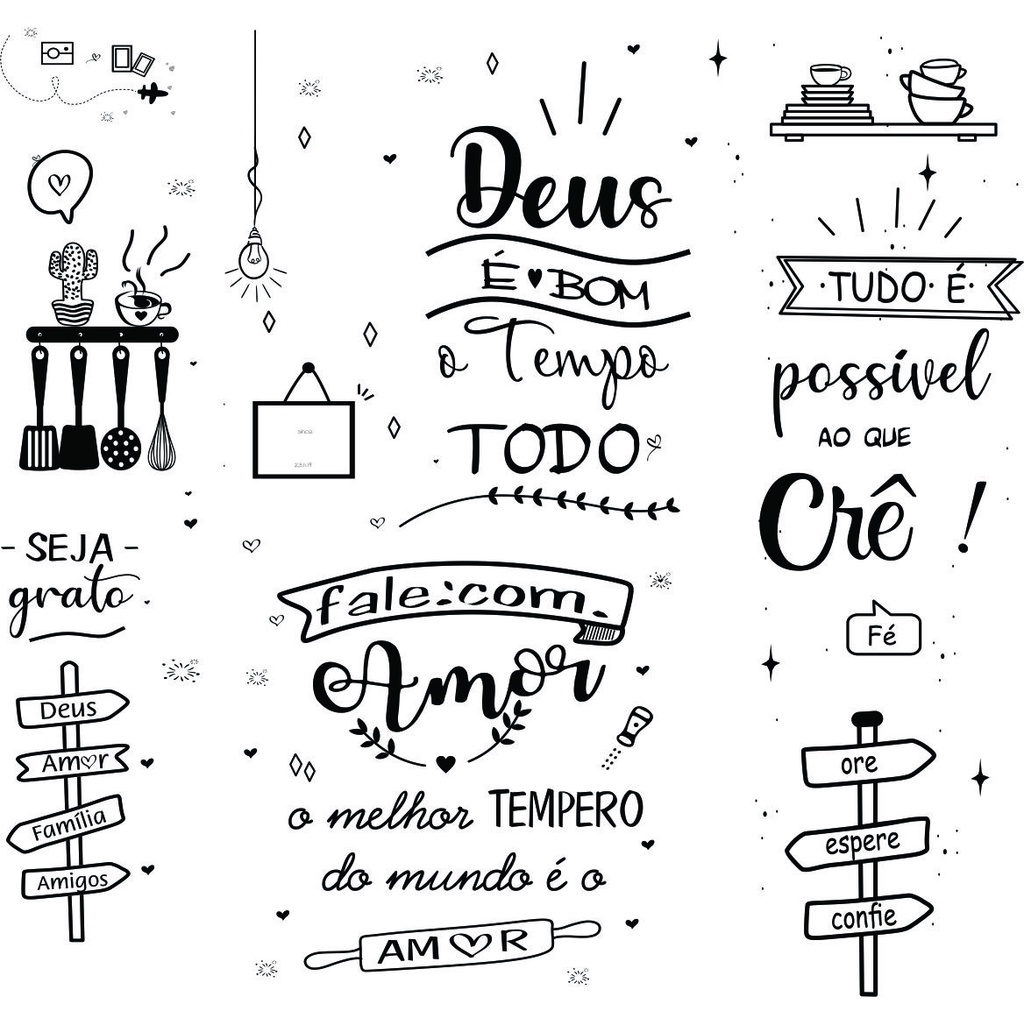 Deus
É BOM
o Tempo
TODO
TUDO É
possível
AO QUE
Crê !
- SEJA -
grato.
fale: com.
Amor
Fé
Deus
Amor
Família
Amigos
ore
espere
confie
o melhor TEMPERO
do mundo é o
AMOR